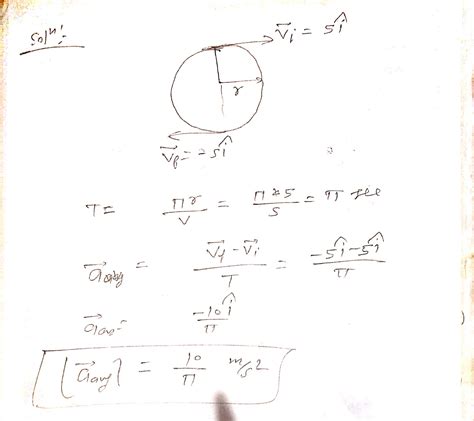 Solⁿ:-
v⃗ᵢ = 5î
r
v⃗_f = -5î
T = πr/v = π×5/5 = π sec
a⃗_avg = (v⃗_f - v⃗ᵢ)/T = (-5î - 5î)/π
a⃗_av = -10î/π
|a⃗_avg| = 10/π m/s²